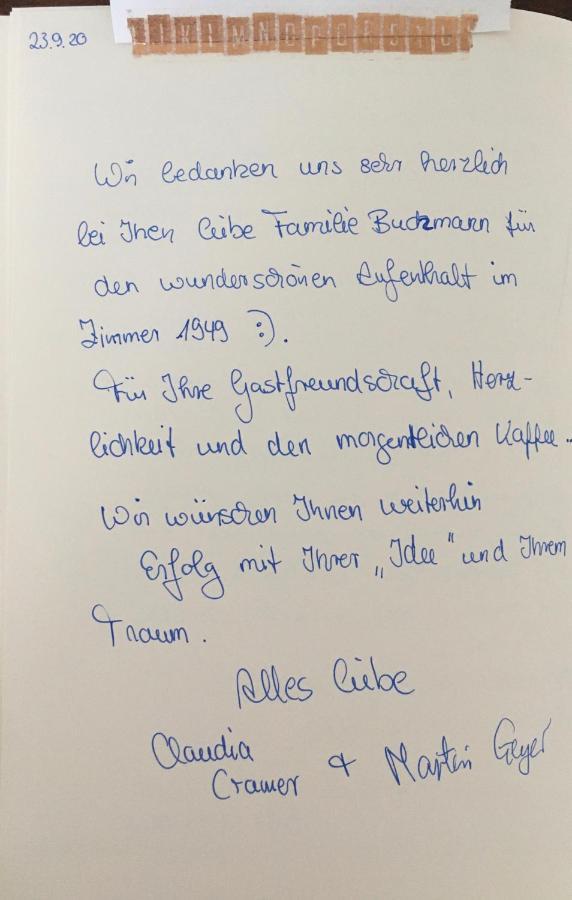 23.9.20
JKLMNOPQRSTU
Wir bedanken uns sehr herzlich
bei Ihen liebe Familie Buchmann für
den wunderschönen Aufenthalt im
Zimmer 1949 :).
Für Ihre Gastfreundschaft, Herz-
lichkeit und den morgentlichen Kaffee..
Wir wünschen Ihnen weiterhin
Erfolg mit Ihrer „Idee" und Ihrem
Traum.
Alles liebe
Claudia
Cramer & Martin Geyer